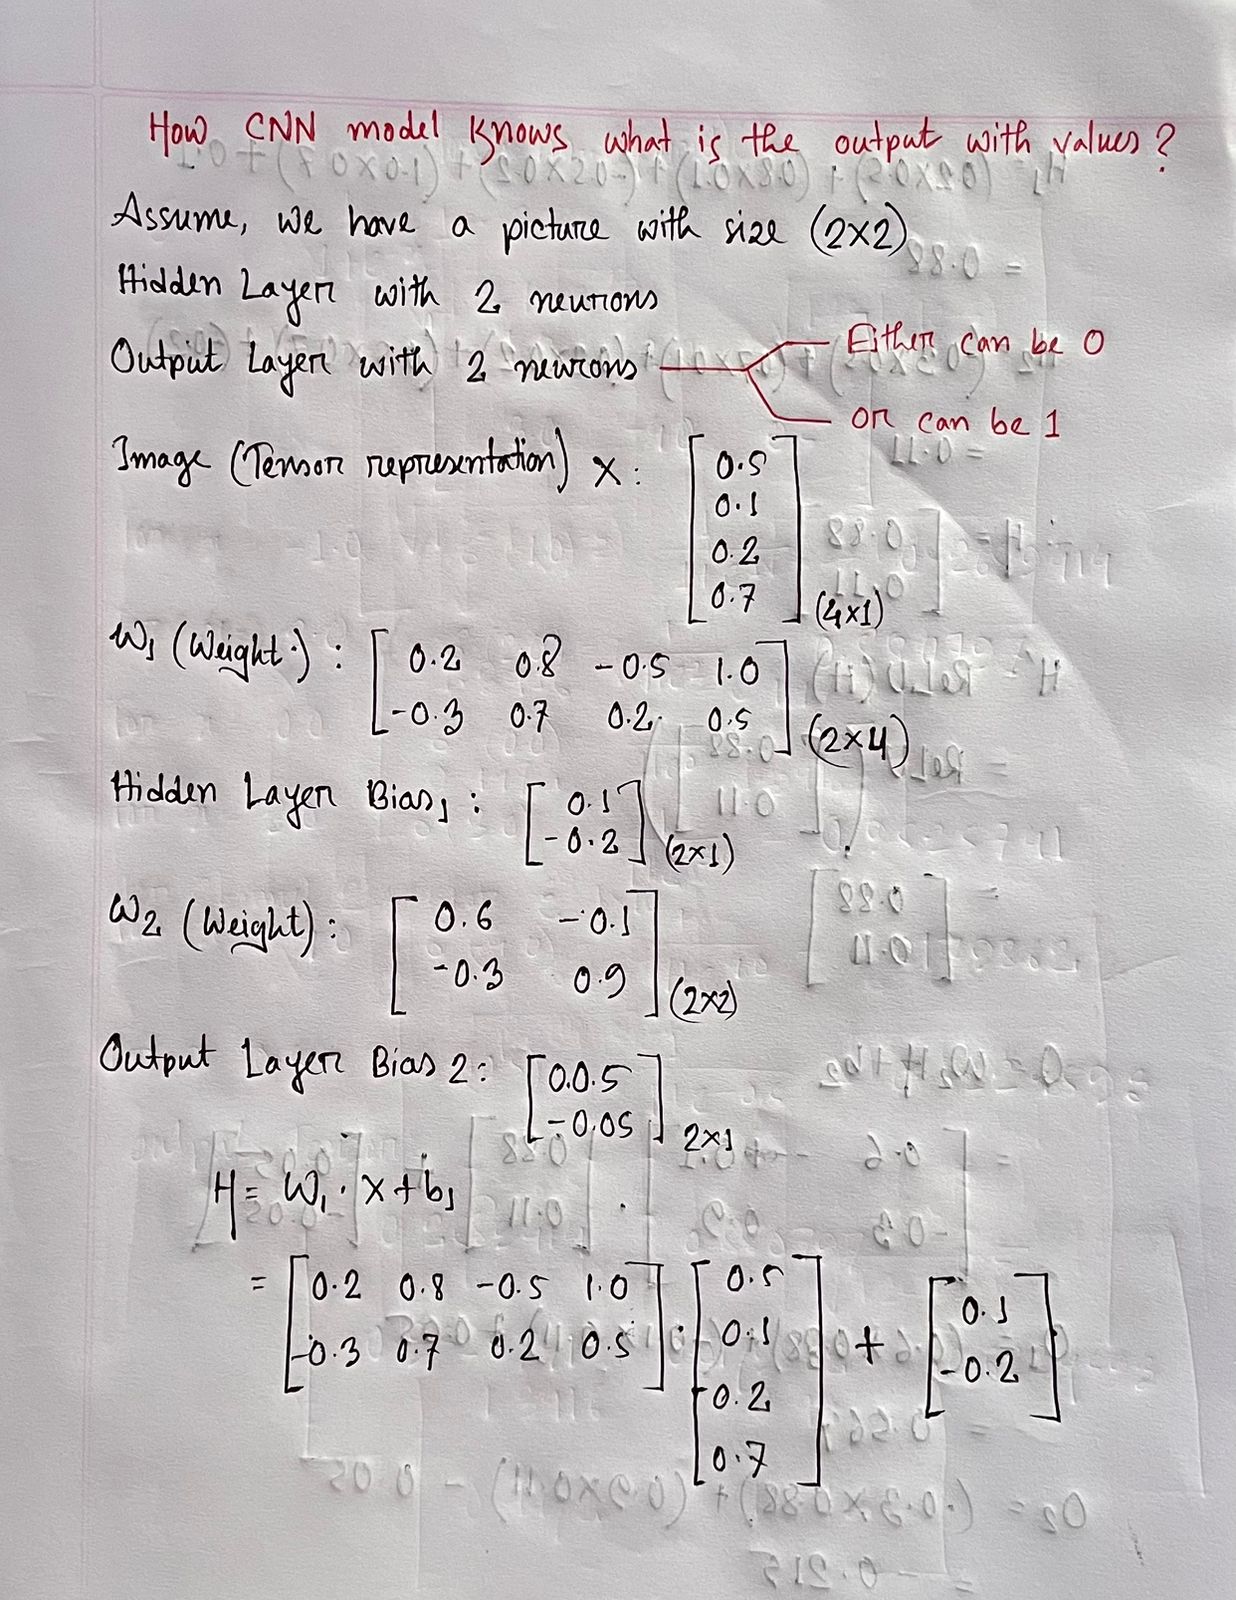 How CNN model knows what is the output with values?
Assume, we have a picture with size (2×2)
Hidden Layer with 2 neurons
Output Layer with 2 neurons
Either can be 0
or can be 1
Image (Tensor representation) X:
0.5
0.1
0.2
0.7
(4×1)
W1 (Weight.) :
0.2 0.8 -0.5 1.0
-0.3 0.7 0.2 0.5
(2×4)
Hidden Layer Bias1 :
0.1
-0.2
(2×1)
W2 (Weight) :
0.6 -0.1
-0.3 0.9
(2×2)
Output Layer Bias 2:
0.0.5
-0.05
2×1
H = W1 . X + b1
= [0.2 0.8 -0.5 1.0] . [0.5] + [0.1]
[-0.3 0.7 0.2 0.5] [0.1] [-0.2]
[0.2]
[0.7]